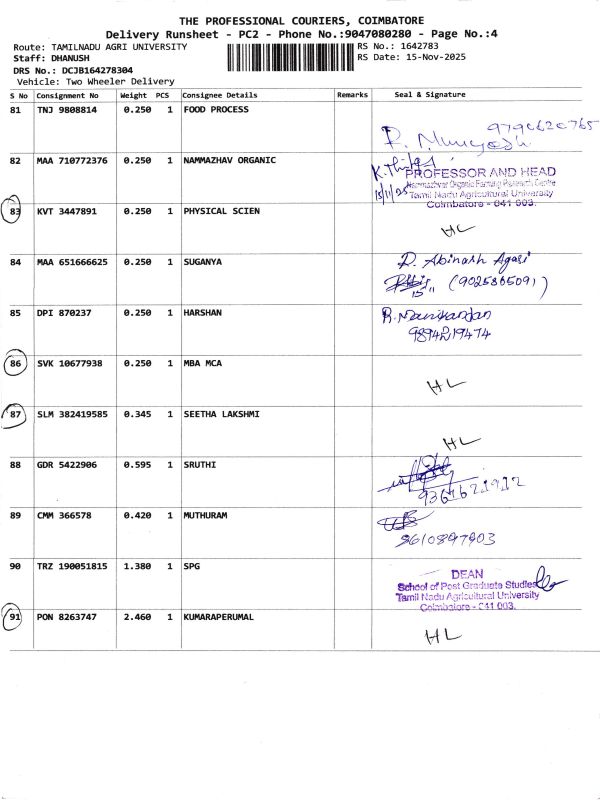 THE PROFESSIONAL COURIERS, COIMBATORE
Delivery Runsheet - PC2 - Phone No.:9047080280 - Page No.:4
Route: TAMILNADU AGRI UNIVERSITY RS No.: 1642783
Staff: DHANUSH RS Date: 15-Nov-2025
DRS No.: DCJB164278304
Vehicle: Two Wheeler Delivery
S No Consignment No Weight PCS Consignee Details Remarks Seal & Signature
81 TNJ 9808814 0.250 1 FOOD PROCESS
9790620765
82 MAA 710772376 0.250 1 NAMMAZHAV ORGANIC
PROFESSOR AND HEAD
Nammazhvar Organic Farming Research Centre
Tamil Nadu Agricultural University
Coimbatore - 641 003.
83 KVT 3447891 0.250 1 PHYSICAL SCIEN
HL
84 MAA 651666625 0.250 1 SUGANYA
D. Abinash Agasi
(9025865091)
85 DPI 870237 0.250 1 HARSHAN
R. Manikandan
9894219474
86 SVK 10677938 0.250 1 MBA MCA
HL
87 SLM 382419585 0.345 1 SEETHA LAKSHMI
HL
88 GDR 5422906 0.595 1 SRUTHI
9361621912
89 CMM 366578 0.420 1 MUTHURAM
90 TRZ 190051815 1.380 1 SPG
DEAN
School of Post Graduate Studies
Tamil Nadu Agricultural University
Coimbatore - 641 003.
91 PON 8263747 2.460 1 KUMARAPERUMAL
HL